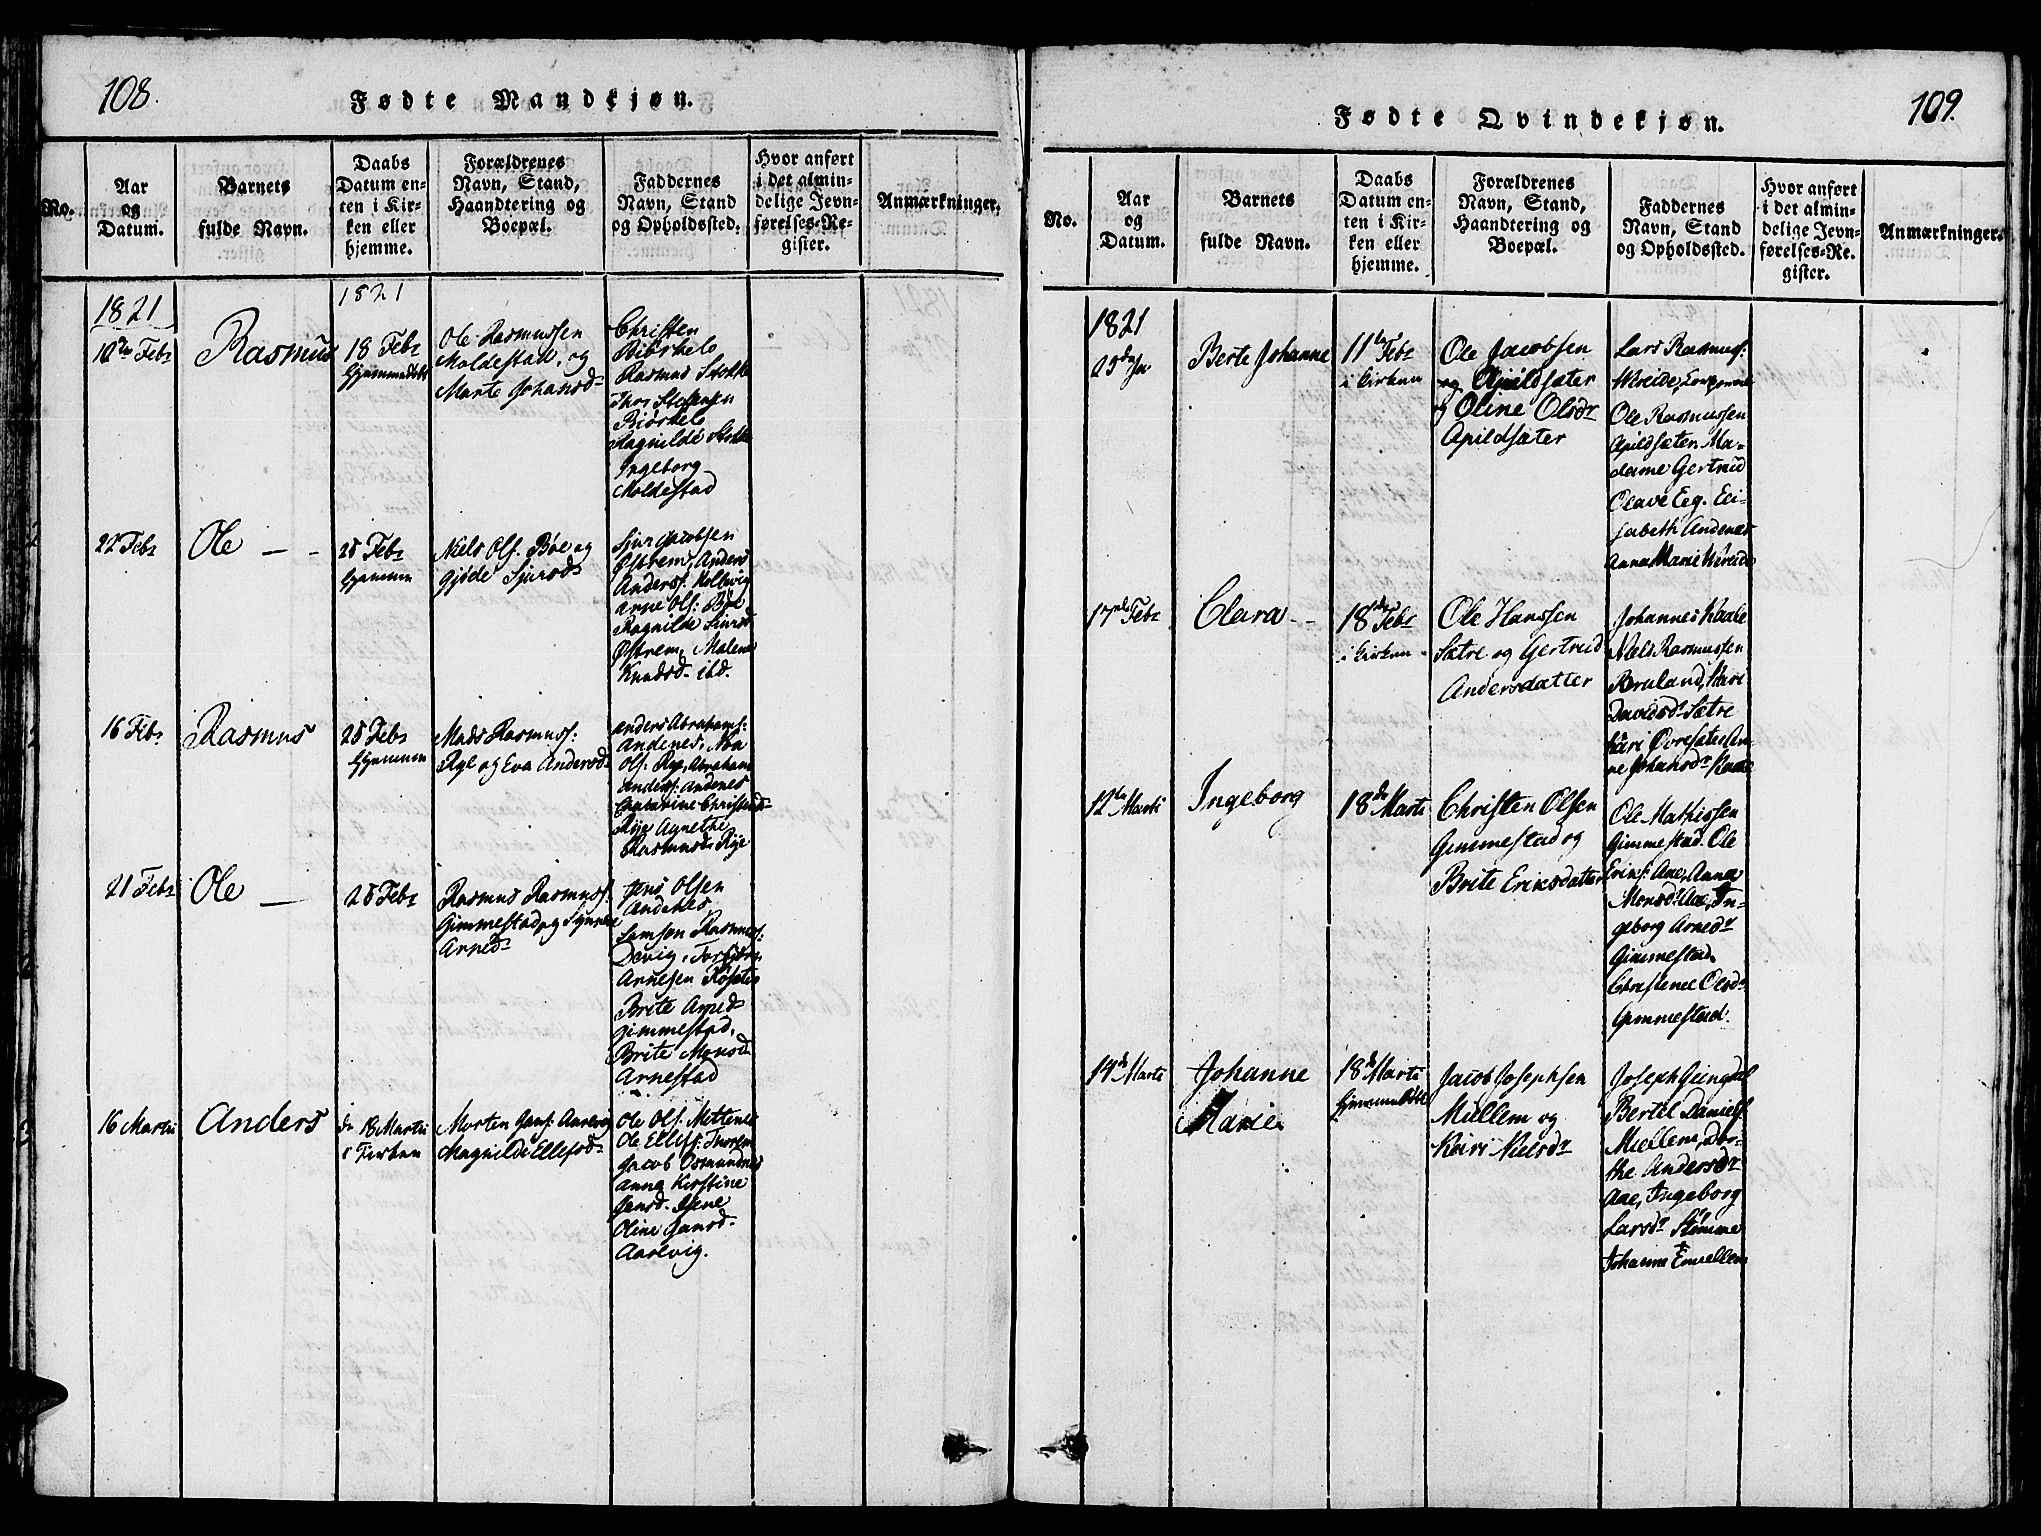 108.
Fødte Mandkjøn.
No.
Aar
og
Datum.
Barnets
fulde Navn.
Daabs
Datum en-
ten i Kir-
ken eller
hjemme.
Forældrenes
Navn, Stand,
Haandtering og
Boepæl.
Faddernes
Navn, Stand
og Opholdssted.
Hvor anført
i det almin-
delige Jevn-
førelses-Re-
gister.
Anmærkninger.
1821
10de Febr
Rasmus
1821
18 Febr
Hjemmedøbt
Ole Rasmussen
Moldestad, og
Marte Johansd
Christen
Biørkelo
Rasmus Stokke
Thor Steffensen
Biørkelo
Ragnilde Stokke
Ingeborg
Moldestad
22 Febr
Ole - -
25 Febr
Hjemmen
Niels Ols. Bøe og
Gjøde Sjursd
Sjur Jacobsen
Østrem, Anders
Anderss.
Arne Ols: Bøe
Ragnilde Siursd
Østrem, Malene
Knudsd. ibd.
16 Febr
Rasmus
25 Febr
Hjemmen
Mads Rasmuss:
Rye og Eva Andersd
Anders Abrahams:
Andenes,
Ols. Rye, Abraham
Anderss: Andenes
Chatarine Christensd
Rye Agnethe
Rasmusd. Rye
21 Febr
Ole -
25 Febr
Rasmus Rasmuss.
Gimmestad og Synneve
Arnesd
Jens Olsen
Andenes
Samson Rasmus:
Devig, Torbiørn
Arnesen
Brite Arnesd
Gimmestad,
Brite Monsd
Arnestad
16 Martii
Anders
d. 18 Martii
i Kirken
Morten Jans. Aarevig
Magnilde Ellefsd
Ole Ols. Mettenes
Ole Ellefs:
Jacob Osmundnes
Anna Kirstine
Jansd.
Oline Jansd.
Aarevig.
109.
Fødte Qvindekjøn.
No.
Aar
og
Datum.
Barnets
fulde Navn.
Daabs
Datum en-
ten i Kir-
ken eller
hjemme.
Forældrenes
Navn, Stand,
Haandtering og
Boepæl.
Faddernes
Navn, Stand
og Opholdssted.
Hvor anført
i det almin-
delige Jevn-
førelses-Re-
gister.
Anmærkninger.
1821
25de Ja
Berte Johanne
11te Febr
i Kirken
Ole Jacobsen
og Apildsæter
og Oline Olsdr
Apildsæter
Lars Rasmus:
Wereide,
Ole Rasmussen
Apildsæter, Ma-
dame Gertrud
Olave Eeg. Eli-
sabeth Andenes
Anna Marie Wereide
17de Febr
Clara -
18de Febr
i Kirken
Ole Hanssen
Sætre og Gertrud
Andersdatter
Johannes Raade
Niels Rasmussen
Beruland, Mari
Davidsdr Sætre
Kari Øvresæter An-
ne Johansdr
12te Marti
Ingeborg
18de Marti
Christen Olsen
Gimmestad og
Brite Eriksdatter
Ole Mathissen
Gimmestad. Ole
Eriks: Aae, Anna
Monsdr Aae, In-
geborg Arnesdr
Gimmestad.
Christence Olsdr
Gimmestad.
14de Marti
Johanne
Marie
18de Marti
Hjemmedøbt
Jacob Josephsen
Mullem og
Kari Nielsdr
Joseph
Bertel Daniels.
Mullem, Dor-
the Andersdr
Aae, Ingeborg
Larsdr Stømme
Johanne